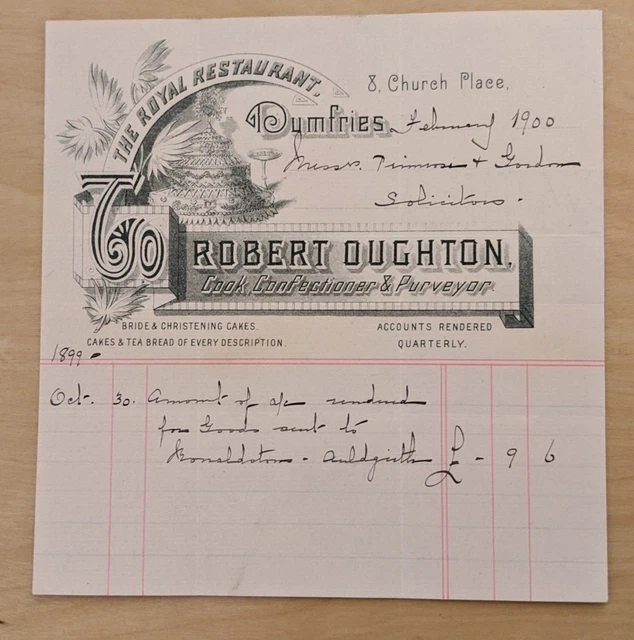 THE ROYAL RESTAURANT.
8, Church Place,
Dumfries, February 1900
Messrs. Primrose & Gordon
Solicitors.
To
ROBERT OUGHTON,
Cook, Confectioner & Purveyor
BRIDE & CHRISTENING CAKES.
CAKES & TEA BREAD OF EVERY DESCRIPTION.
ACCOUNTS RENDERED
QUARTERLY.
1899.
Oct. 30. Amount of a/c rendered
for Goods sent to
Auldgirth £ - 9 6